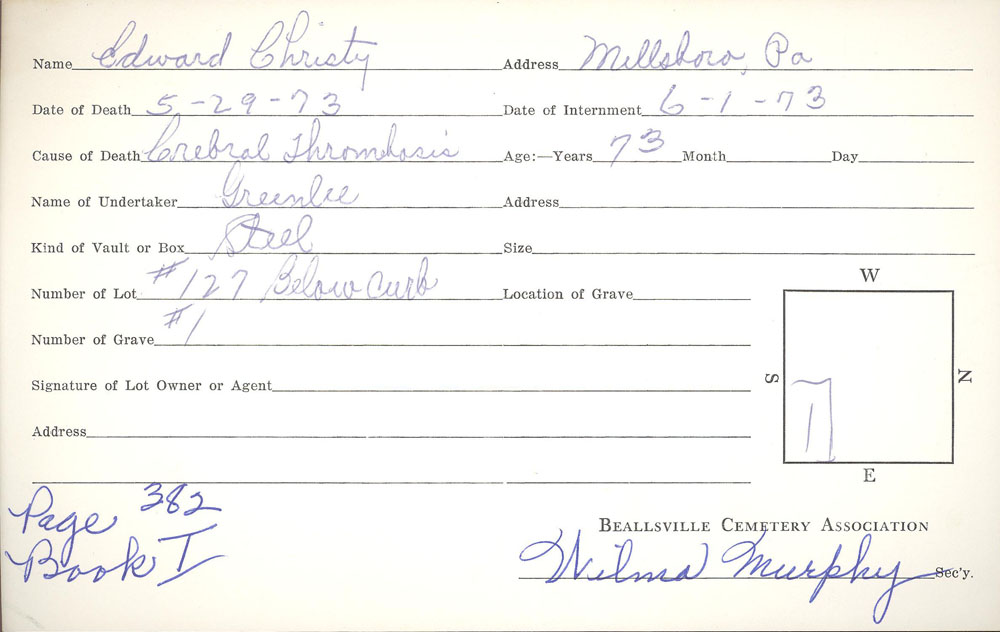 Name Edward Christy Address Millsboro, Pa
Date of Death 5-29-73 Date of Internment 6-1-73
Cause of Death Cerebral Thrombosis Age:—Years 73 Month Day
Name of Undertaker Greenlee Address
Kind of Vault or Box Steel Size
Number of Lot #127 Below Curb Location of Grave
Number of Grave #1
Signature of Lot Owner or Agent
Address
W
S N
1
E
Page 382
Book I
Beallsville Cemetery Association
Wilma Murphy Sec'y.